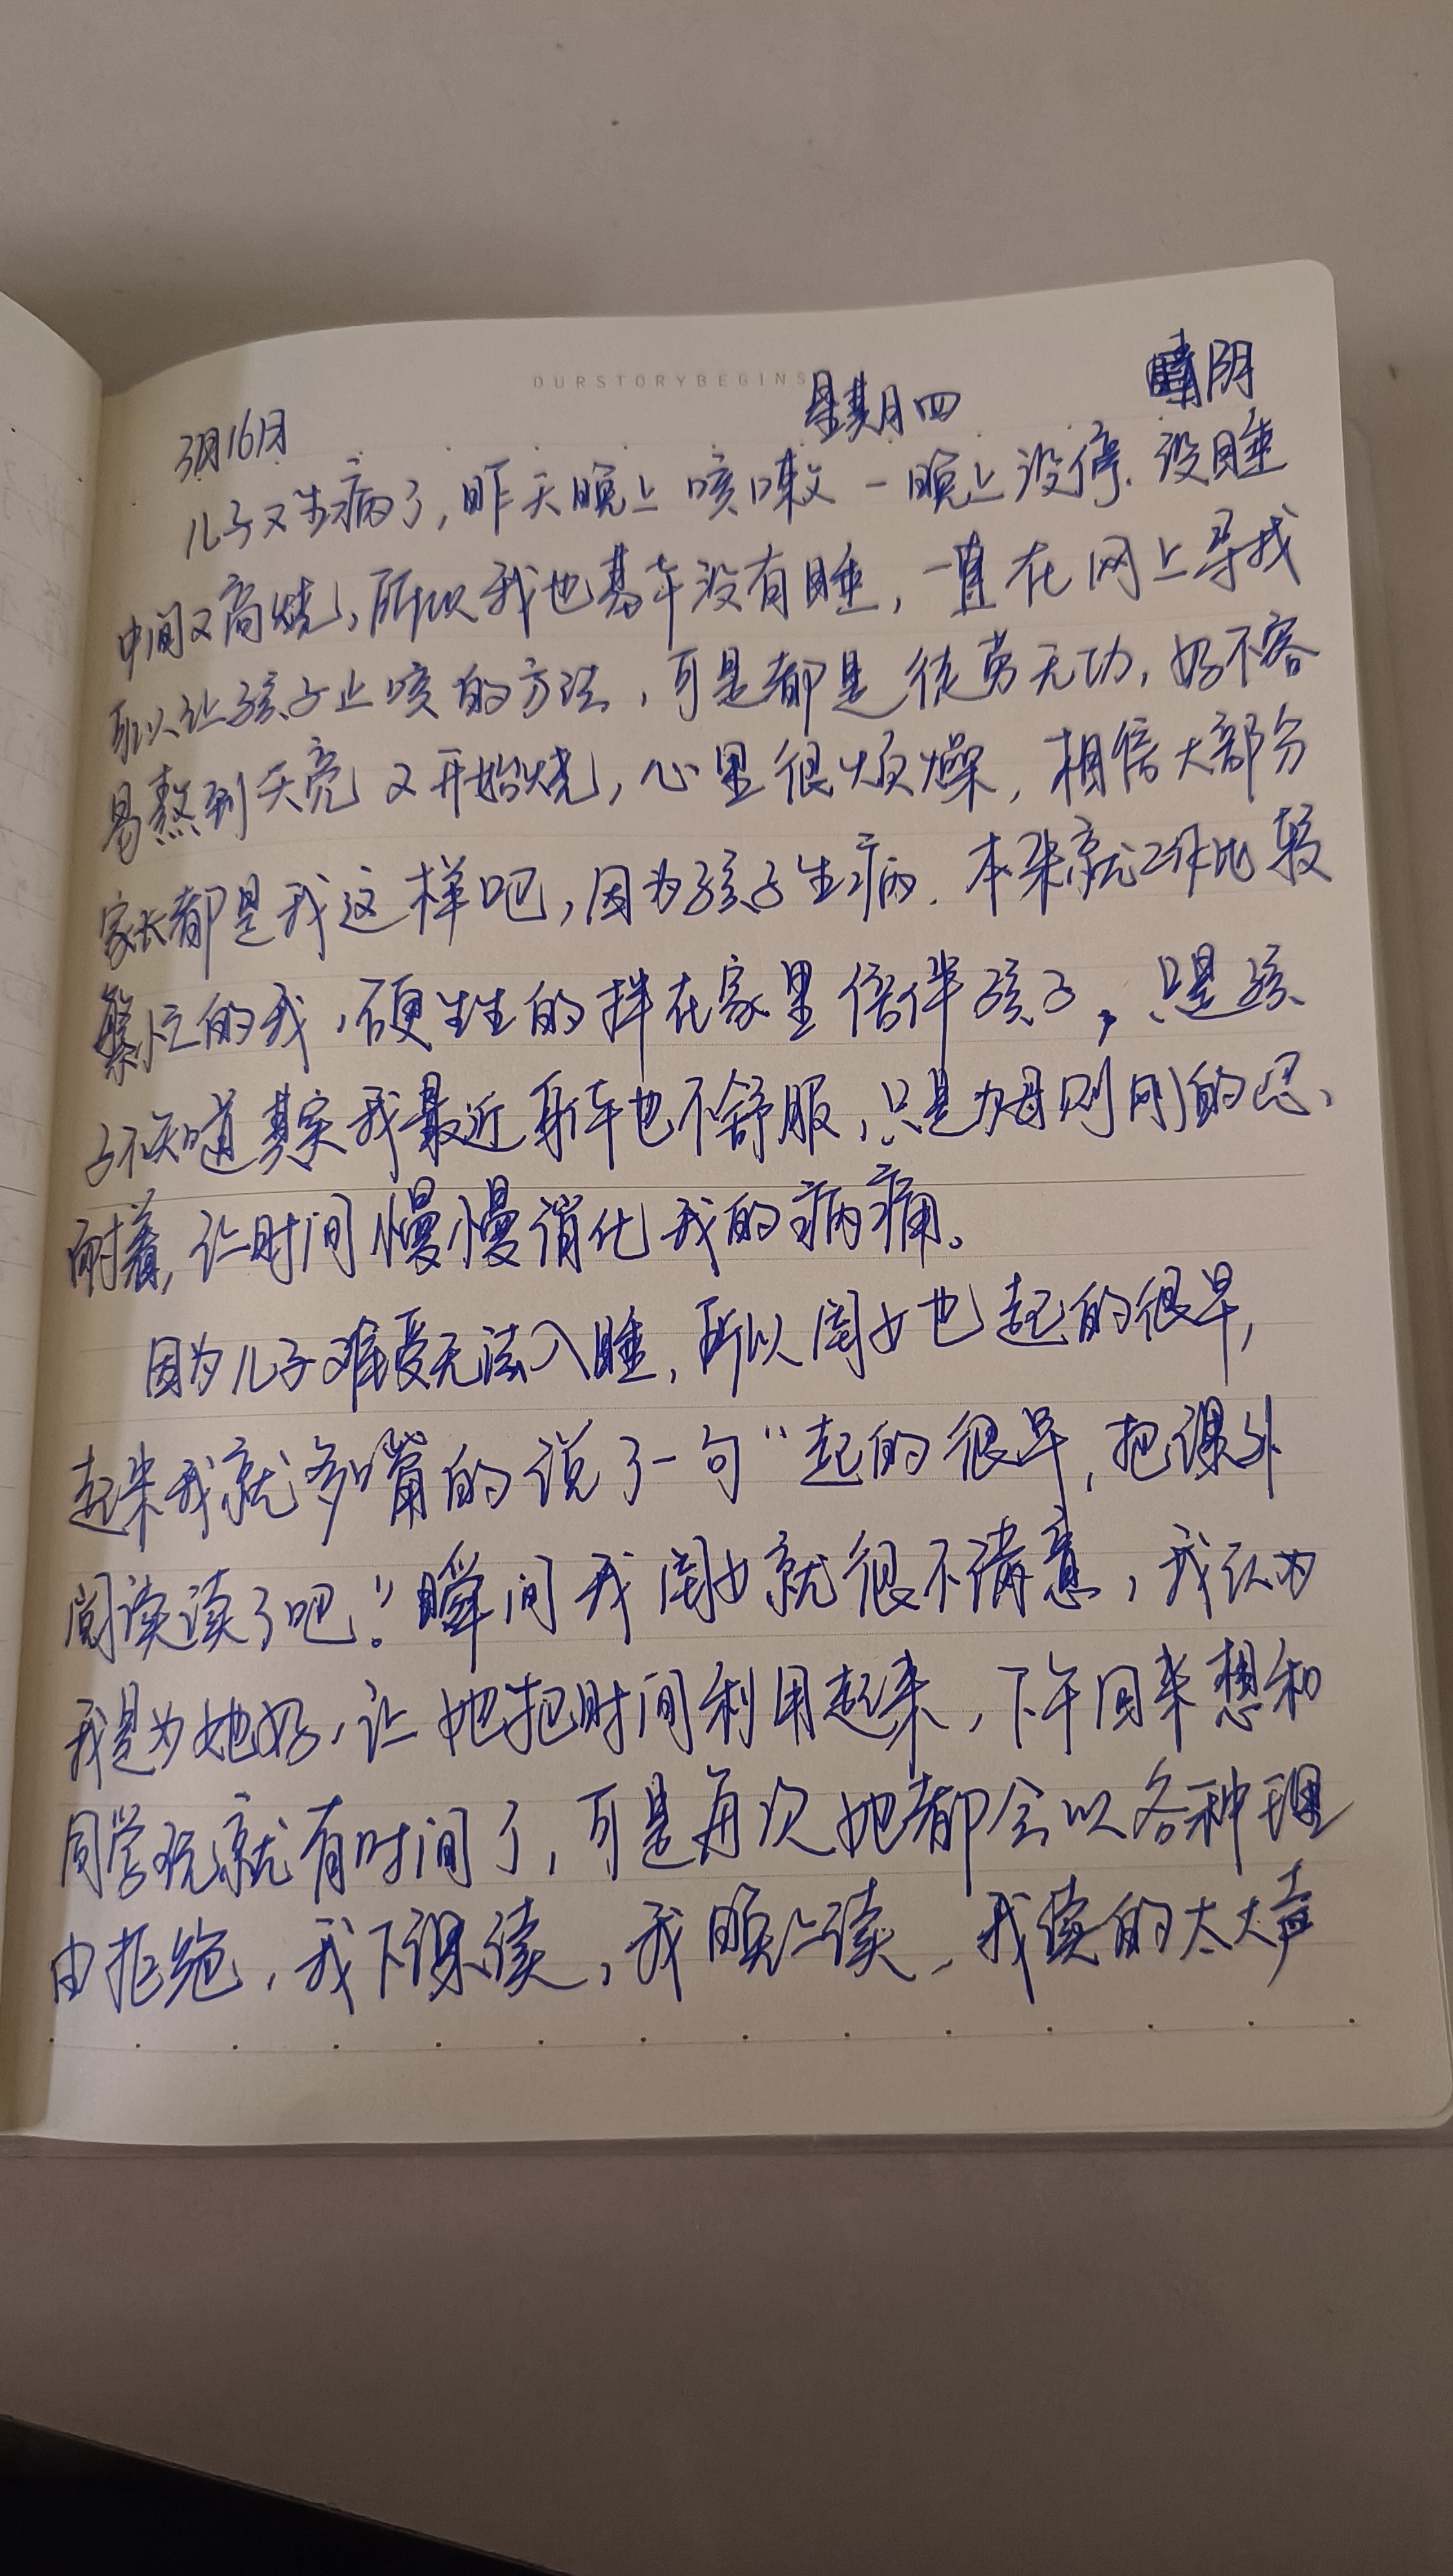 OURSTORYBEGINS
3月16日 星期四 阴
儿子又生病了,昨天晚上咳嗽一晚上没停.没睡
中间又高烧,所以我也基本没有睡,一直在网上寻找
可以让孩子止咳的方法,可是都是徒劳无功,好不容
易熬到天亮又开始烧,心里很烦燥,相信大部分
家长都是我这样吧,因为孩子生病.本来就工作比较
繁忙的我,硬生生的拌在家里倍伴孩子,只是孩
子不知道其实我最近身体也不舒服,只是为母则刚的忍、
耐着,让时间慢慢消化我的病痛。
因为儿子难受无法入睡,所以闺女也起的很早,
起来我就多嘴的说了一句"起的很早,把课外
阅读读了吧!"瞬间我闺女就很不满意,我认为
我是为她好,让她把时间利用起来,下午回来想和
同学玩就有时间了,可是每次她都会以各种理
由拒绝,我下课读,我晚上读、我读的太大声